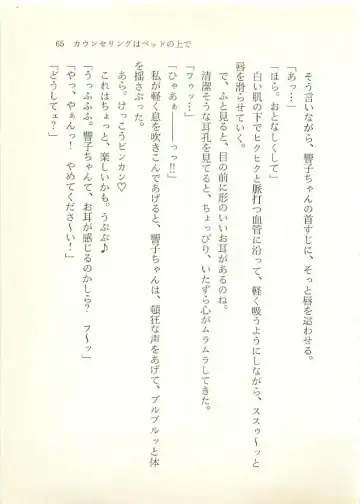 65 カウンセリングはベッドの上で
そう言いながら、響子ちゃんの首すじに、そっと唇を這わせる。
「あっ…」
「ほら。おとなしくして」
白い肌の下でヒクヒクと脈打つ血管に沿って、軽く吸うようにしながら、ススゥ〜ッと
唇を滑らせていく。
で、ふと見ると、目の前に形のいいお耳があるのね。
清潔そうな耳孔を見てると、ちょっぴり、いたずら心がムラムラしてきた。
「フゥッ…」
「ひゃあぁ――っっ!!」
私が軽く息を吹きこんであげると、響子ちゃんは、頓狂な声をあげて、ブルブルッと体
を揺さぶった。
あら。けっこうビンカン♡
これはちょっと、楽しいかも。うぷぷ♪
「うっふふふ。響子ちゃんて、お耳が感じるのかしら?　フ〜ッ」
「やっ、やぁんっ!　やめてくださ〜い!」
「どうしてェ?」